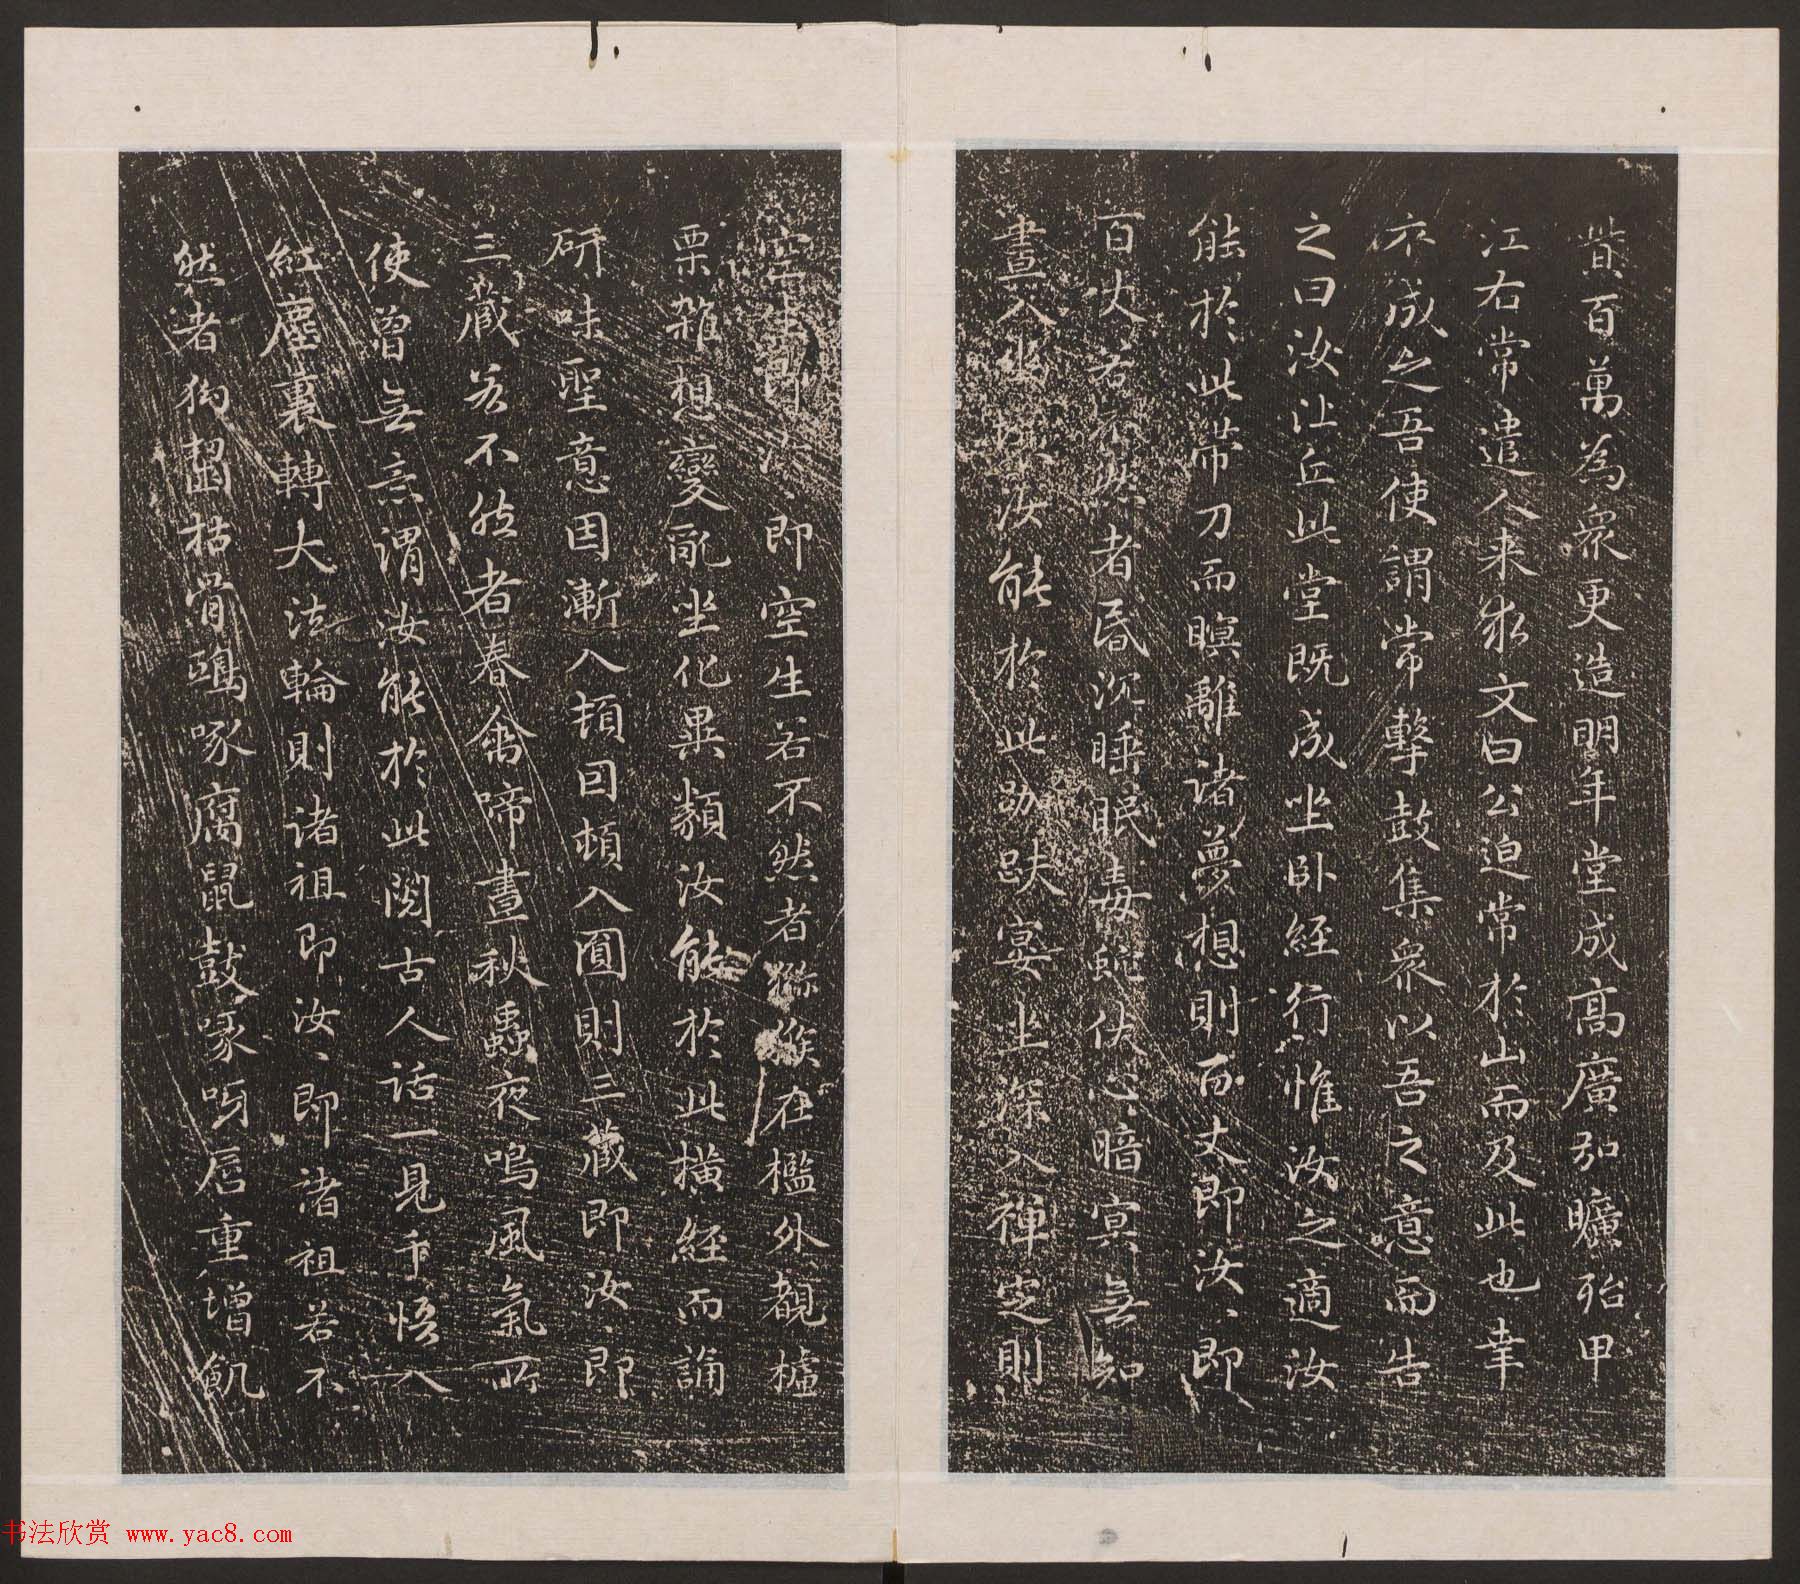 貲百萬為衆更造明年堂成高廣如曠殆甲
江右常遣人来求文曰公迫常於山而及此也幸
不成之吾使謂常擊鼓集衆以吾之意而告
之曰汝比丘此堂既成坐卧経行惟汝之適汝
能於此帶刀而瞑離諸夢想則百丈即汝、即
百丈若不然者昏沉睡眠毒蛇伏心暗冥無知
晝入坐汝能於此跏趺宴坐深入禪定則
空生即汝、即空生若不然者猕猴在檻外覩櫨
栗雜想變亂坐化異類汝能於此橫経而誦
研味聖意因漸入頓因頓入圓則三蔵即汝、即
三蔵若不然者春禽啼晝秋蟲夜鳴風氣所
使曾無意謂汝能於此閲古人話一見千悟入
紅塵裏轉大法輪則諸祖即汝、即諸祖若不
然者狗齧枯骨鴟啄腐鼠鼓喙呀唇重增飢
书法欣赏 www.yac8.com